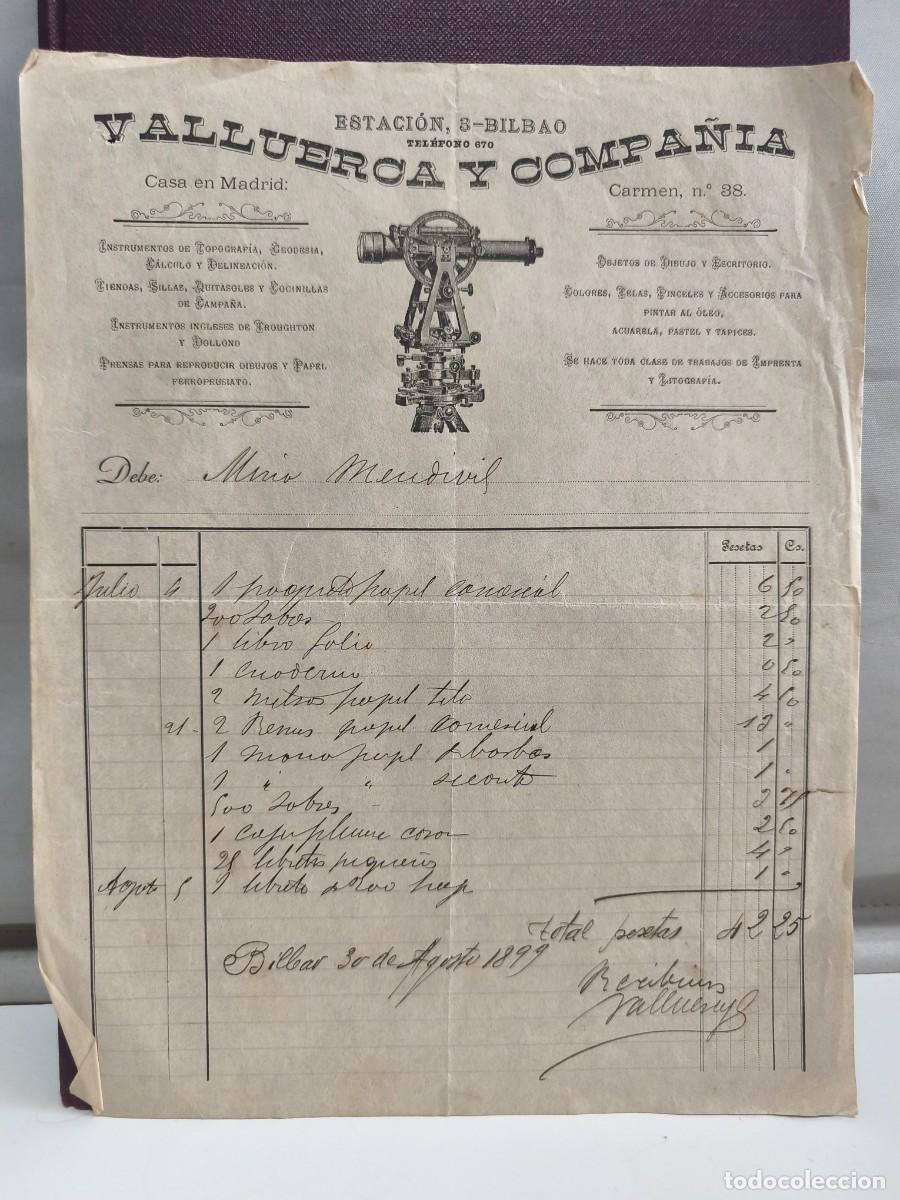 ESTACIÓN, 3-BILBAO
TELÉFONO 670
VALLUERCA Y COMPAÑIA
Casa en Madrid:
Carmen, n.º 38.
INSTRUMENTOS DE TOPOGRAFÍA, GEODESIA,
CÁLCULO Y DELINEACIÓN.
TIENDAS, SILLAS, QUITASOLES Y COCINILLAS
DE CAMPAÑA.
INSTRUMENTOS INGLESES DE TROUGHTON
Y DOLLOND
PRENSAS PARA REPRODUCIR DIBUJOS Y PAPEL
FERROPRUSIATO.
OBJETOS DE DIBUJO Y ESCRITORIO.
COLORES, TELAS, PINCELES Y ACCESORIOS PARA
PINTAR AL ÓLEO,
ACUARELA, PASTEL Y TAPICES.
SE HACE TODA CLASE DE TRABAJOS DE IMPRENTA
Y LITOGRAFÍA.
Debe: Mendivil
Pesetas Cs.
Julio 6 1 papel comercial 6 50
200 Sobres 2 50
1 libro folio 2 "
1 cuaderno 0 50
2 metros papel tela 4 50
21 - 2 Remas papel comercial 1 "
1 mano papel barbas 1
1 " " secante 1 "
500 Sobres 2 75
1 2 50
25 libretas pequeñas 4 "
Agosto 5 1 libreta 200 1 "
total pesetas 42 25
Bilbao 30 de Agosto 1899
Recibimos